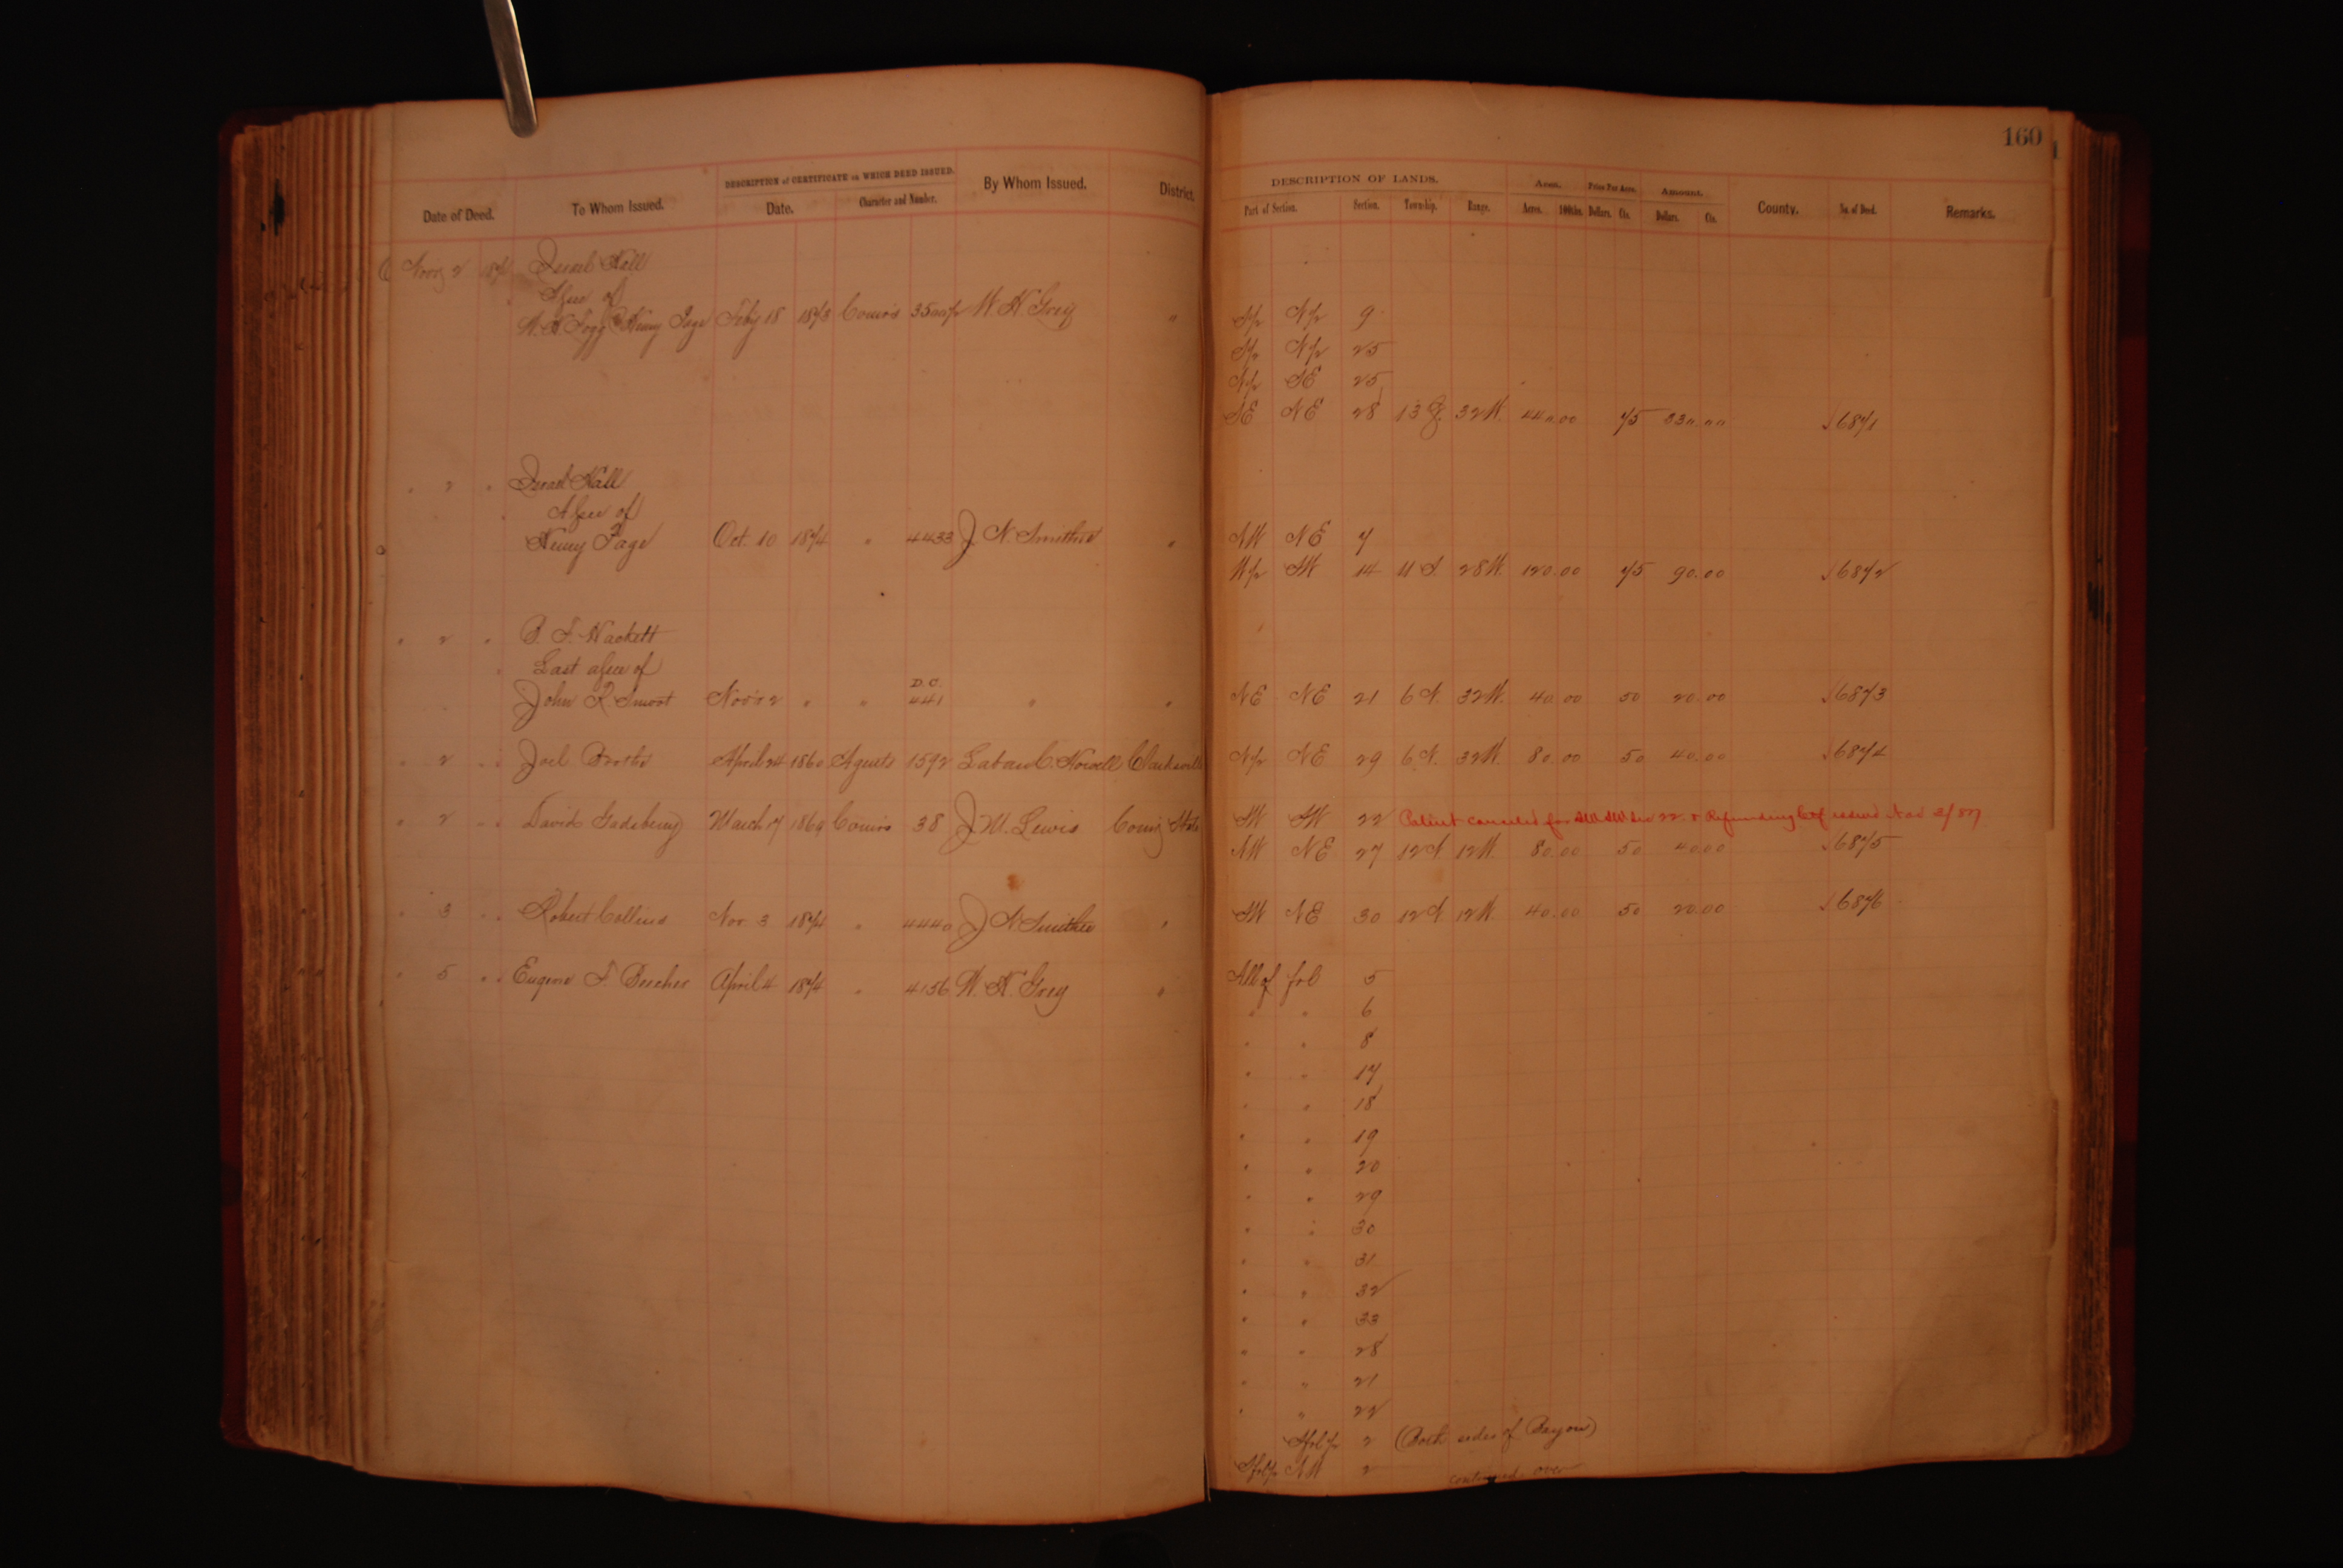 160
DESCRIPTION of CERTIFICATE on WHICH DEED ISSUED.
Date of Deed. To Whom Issued. Date. Character and Number. By Whom Issued. District.
DESCRIPTION OF LANDS. Area. Price Per Acre. Amount.
Part of Section. Section. Township. Range. Acres. 100ths. Dollars. Cts. Dollars. Cts. County. No. of Deed. Remarks.
Israel Hall
of
Henry Page Feby 18 1873 Comrs W. H. Grey "
S½ N½ 9
S½ N½ 25
N½ SE 25
SE NE 28 32W. 440.00 75 330.00 6871
" 2 " Israel Hall
Asee of
Henry Page Oct. 10 1874 " 4433 J. N. Smithee "
NW NE 7
W½ SW 14 11 S. 28W. 120.00 75 90.00 6872
" 2 " B. F. Hackett
Last asee of
D.C.
John R. Smoot Nov 2 " " 441 " " NE NE 21 6 N. 32W. 40.00 50 20.00 6873
" 2 " " Joel April 24 1860 Agents 1592 Laban C. Howell Clarksville N½ NE 29 6 N. 32W. 80.00 50 40.00 6874
" 2 " " David Gadsberry March 17 1869 Comrs 38 J. W. Lewis Coming State SW SW 22 Patent canceled for SW SW Sec 22 & Refunding Ctf issued
NW NE 27 12 N 12W. 80.00 50 40.00 6875
" 3 " " Robert Collins Nov. 3 1874 " 4440 J. N. Smithee " SW NE 30 12 N 12W. 40.00 50 20.00 6876
" 5 " " Eugene F. Beecher April 4 1874 " 4156 W. H. Grey " All of frl 5
" " 6
" " 8
" " 17
" " 18
" " 19
" " 20
" " 29
" " 30
" " 31
" " 32
" " 33
" " 28
" " 21
" " 22
Sfrl½ 2 (Both sides of Bayou)
NW 2 continued over